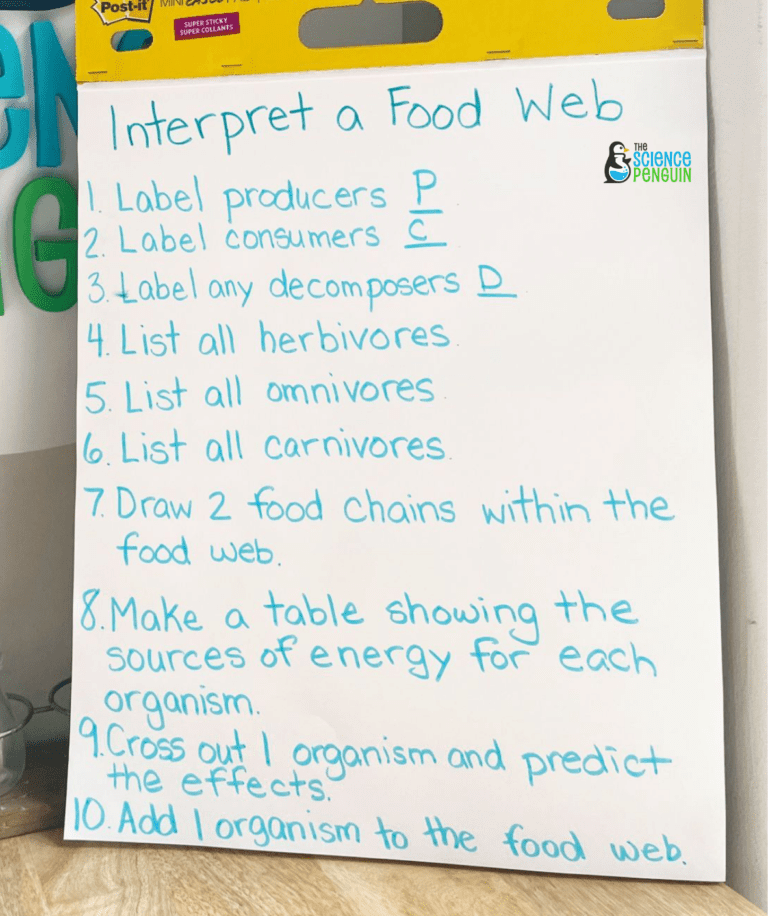 Post-it
SUPER STICKY
SUPER COLLANTS
Interpret a Food Web
THE
SCIENCE
PENGUIN
1. Label producers P
2. Label consumers C
3. Label any decomposers D
4. List all herbivores.
5. List all omnivores.
6. List all carnivores.
7. Draw 2 food chains within the
food web.
8. Make a table showing the
sources of energy for each
organism.
9. Cross out 1 organism and predict
the effects.
10. Add 1 organism to the food web.